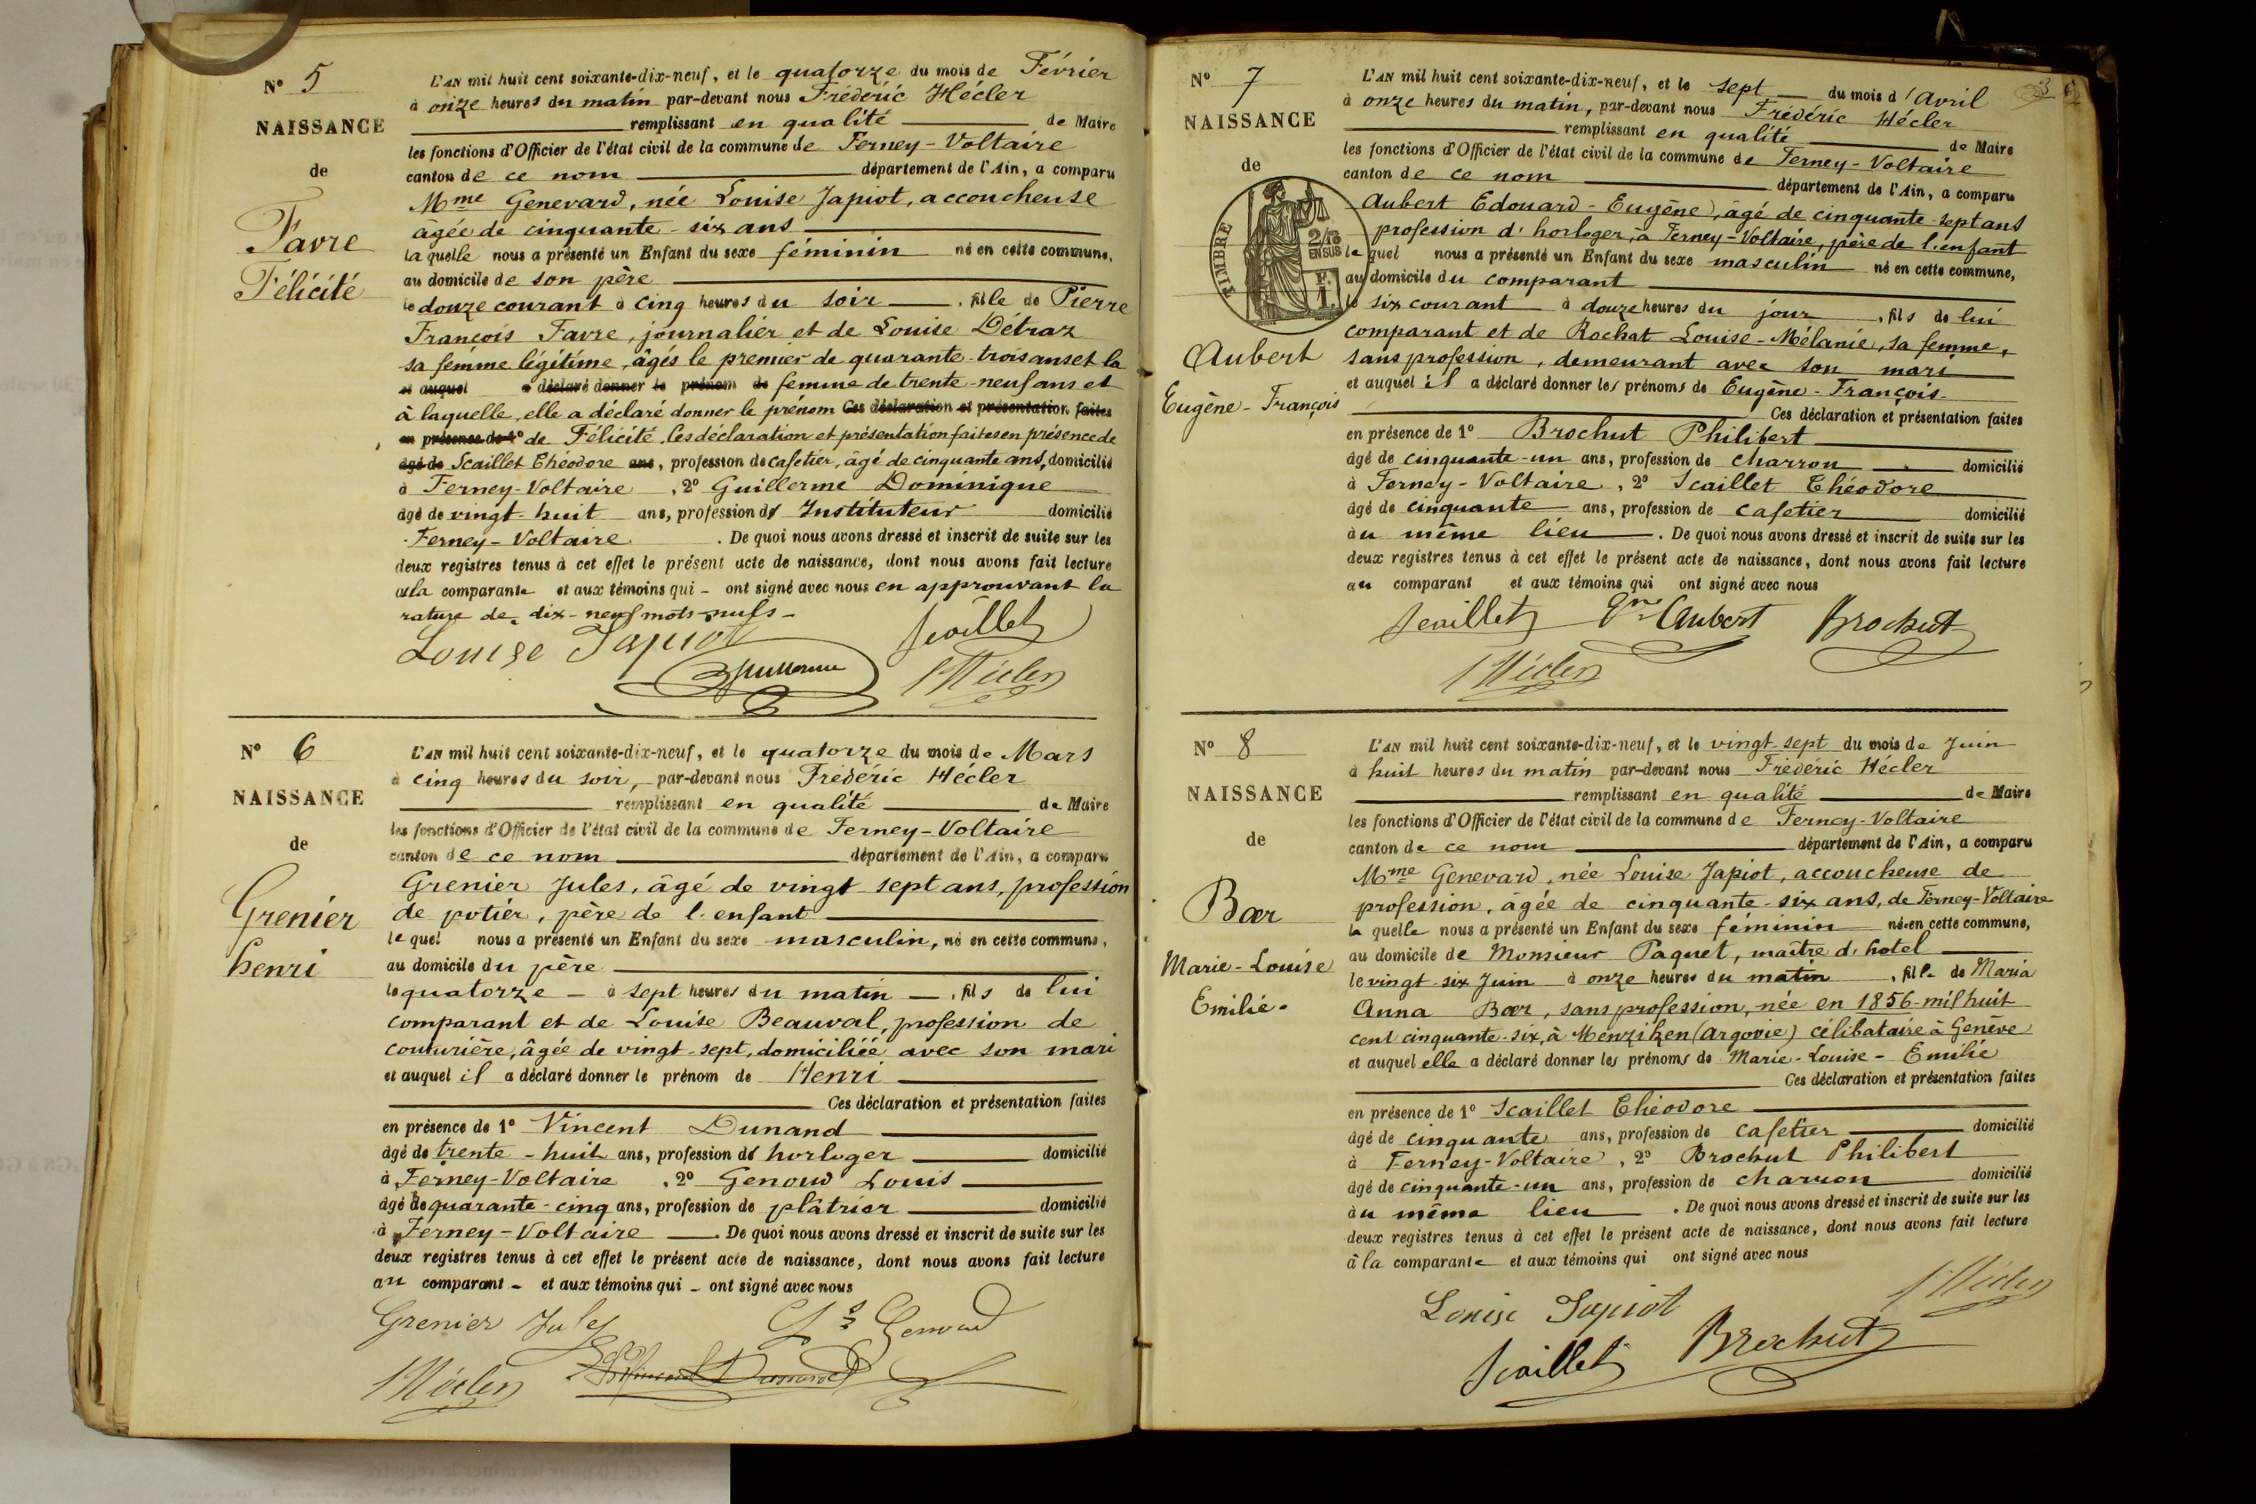 N° 5
NAISSANCE
de
Favre
Félicité
L'AN mil huit cent soixante-dix-neuf, et le quatorze du mois de Février
à onze heures du matin par-devant nous Frédéric Hécler
remplissant en qualité de Maire
les fonctions d'Officier de l'état civil de la commune de Ferney-Voltaire
canton de ce nom département de l'Ain, a comparu
Mme Genevard, née Louise Japiot, accoucheuse
âgée de cinquante-six ans
laquelle nous a présenté un Enfant du sexe féminin né en cette commune,
au domicile de son père
le douze courant à cinq heures du soir, fille de Pierre
François Favre, journalier et de Louise Détraz
sa femme légitime, âgés le premier de quarante-trois ans et la
et auquel a déclaré donner le prénom de femme de trente-neuf ans et
à laquelle, elle a déclaré donner le prénom Ces déclaration et présentation faites
en présence de 1° de Félicité, les déclaration et présentation faites en présence de
âgé de Scaillet Théodore ans, profession de cafetier, âgé de cinquante ans, domicilié
à Ferney-Voltaire, 2° Guillerme Dominique
âgé de vingt-huit ans, profession d' Instituteur domicilié
Ferney-Voltaire. De quoi nous avons dressé et inscrit de suite sur les
deux registres tenus à cet effet le présent acte de naissance, dont nous avons fait lecture
à la comparante et aux témoins qui - ont signé avec nous en approuvant la
rature de dix-neuf mots nuls -
Louise Japiot Scaillet
Guillerme FHécler
N° 6
NAISSANCE
de
Grenier
henri
L'AN mil huit cent soixante-dix-neuf, et le quatorze du mois de Mars
à cinq heures du soir, par-devant nous Frédéric Hécler
remplissant en qualité de Maire
les fonctions d'Officier de l'état civil de la commune de Ferney-Voltaire
canton de ce nom département de l'Ain, a comparu
Grenier Jules, âgé de vingt sept ans, profession
de potier, père de l'enfant
lequel nous a présenté un Enfant du sexe masculin, né en cette commune,
au domicile du père
le quatorze - à sept heures du matin -, fils de lui
comparant et de Louise Beauval, profession de
couturière, âgée de vingt-sept, domiciliée avec son mari
et auquel il a déclaré donner le prénom de Henri
Ces déclaration et présentation faites
en présence de 1° Vincent Dunand
âgé de trente-huit ans, profession d' horloger domicilié
à Ferney-Voltaire, 2° Genoud Louis
âgé de quarante-cinq ans, profession de plâtrier domicilié
à Ferney-Voltaire. De quoi nous avons dressé et inscrit de suite sur les
deux registres tenus à cet effet le présent acte de naissance, dont nous avons fait lecture
au comparant - et aux témoins qui - ont signé avec nous
Grenier Jules Ls Genoud
FHécler Vincent Dunand
N° 7
NAISSANCE
de
TIMBRE
2/10
EN SUS
F.
1.
Aubert
Eugène-François
L'AN mil huit cent soixante-dix-neuf, et le sept du mois d'Avril
à onze heures du matin, par-devant nous Frédéric Hécler
remplissant en qualité de Maire
les fonctions d'Officier de l'état civil de la commune de Ferney-Voltaire
canton de ce nom département de l'Ain, a comparu
Aubert Edouard-Eugène, âgé de cinquante-sept ans
profession d'horloger, à Ferney-Voltaire, père de l'enfant
lequel nous a présenté un Enfant du sexe masculin né en cette commune,
au domicile du comparant
le six courant à douze heures du jour, fils de lui
comparant et de Rochat Louise-Mélanie, sa femme,
sans profession, demeurant avec son mari
et auquel il a déclaré donner les prénoms de Eugène-François-
Ces déclaration et présentation faites
en présence de 1° Brochut Philibert
âgé de cinquante-un ans, profession de charron domicilié
à Ferney-Voltaire, 2° Scaillet Théodore
âgé de cinquante ans, profession de cafetier domicilié
au même lieu. De quoi nous avons dressé et inscrit de suite sur les
deux registres tenus à cet effet le présent acte de naissance, dont nous avons fait lecture
au comparant et aux témoins qui ont signé avec nous
Scaillet Aubert Brochut
FHécler
N° 8
NAISSANCE
de
Bær
Marie-Louise
Emilie-
L'AN mil huit cent soixante-dix-neuf, et le vingt-sept du mois de Juin
à huit heures du matin par-devant nous Frédéric Hécler
remplissant en qualité de Maire
les fonctions d'Officier de l'état civil de la commune de Ferney-Voltaire
canton de ce nom département de l'Ain, a comparu
Mme Genevard, née Louise Japiot, accoucheuse de
profession, âgée de cinquante-six ans, de Ferney-Voltaire
laquelle nous a présenté un Enfant du sexe féminin né en cette commune,
au domicile de Monsieur Paquet, maître d'hotel
le vingt-six Juin à onze heures du matin, fille de Maria
Anna Bær, sans profession, née en 1856-mil huit
cent cinquante-six, à Menziken (Argovie) célibataire à Genève
et auquel elle a déclaré donner les prénoms de Marie-Louise-Emilie
Ces déclaration et présentation faites
en présence de 1° Scaillet Théodore
âgé de cinquante ans, profession de cafetier domicilié
à Ferney-Voltaire, 2° Brochut Philibert
âgé de cinquante-un ans, profession de charron domicilié
au même lieu. De quoi nous avons dressé et inscrit de suite sur les
deux registres tenus à cet effet le présent acte de naissance, dont nous avons fait lecture
à la comparante et aux témoins qui ont signé avec nous
Louise Japiot FHécler
Scaillet Brochut